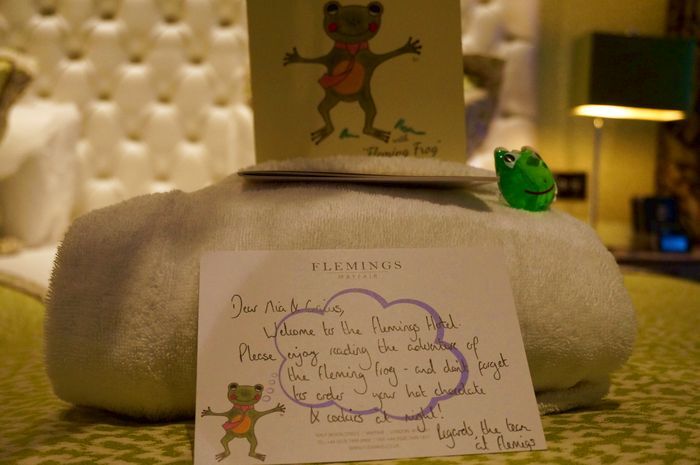 with
"Fleming Frog"
FLEMINGS
MAYFAIR
Dear Mia &
Welcome to the Flemings Hotel.
Please enjoy reading the adventure of
the Fleming Frog - and don't forget
to order your hot chocolate
& cookies at night!
Regards, the team
at Flemings